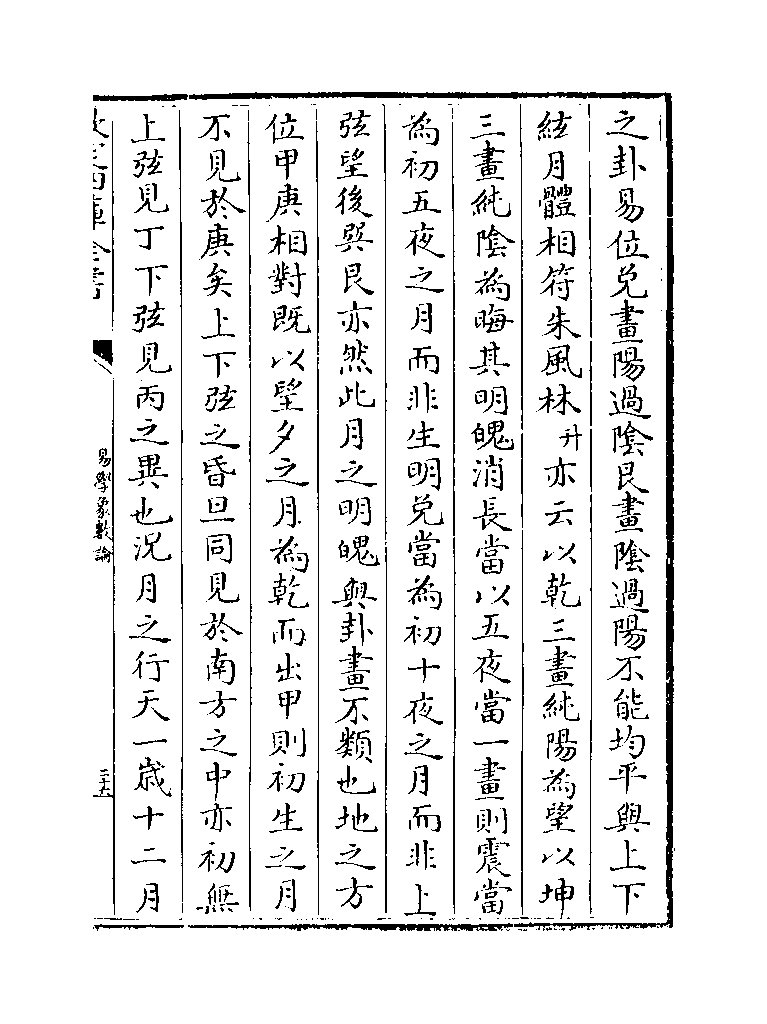 之卦易位兑畫陽過陰艮畫陰過陽不能均平與上下
絃月體相符朱風林升亦云以乾三畫純陽為望以坤
三畫純陰為晦其明魄消長當以五夜當一畫則震當
為初五夜之月而非生明兑當為初十夜之月而非上
弦望後巽艮亦然此月之明魄與卦畫不類也地之方
位甲庚相對既以望夕之月為乾而出甲則初生之月
不見於庚矣上下弦之昏旦同見於南方之中亦初無
上弦見丁下弦見丙之異也況月之行天一歲十二月
欽定四庫全書
易學象數論
二十六